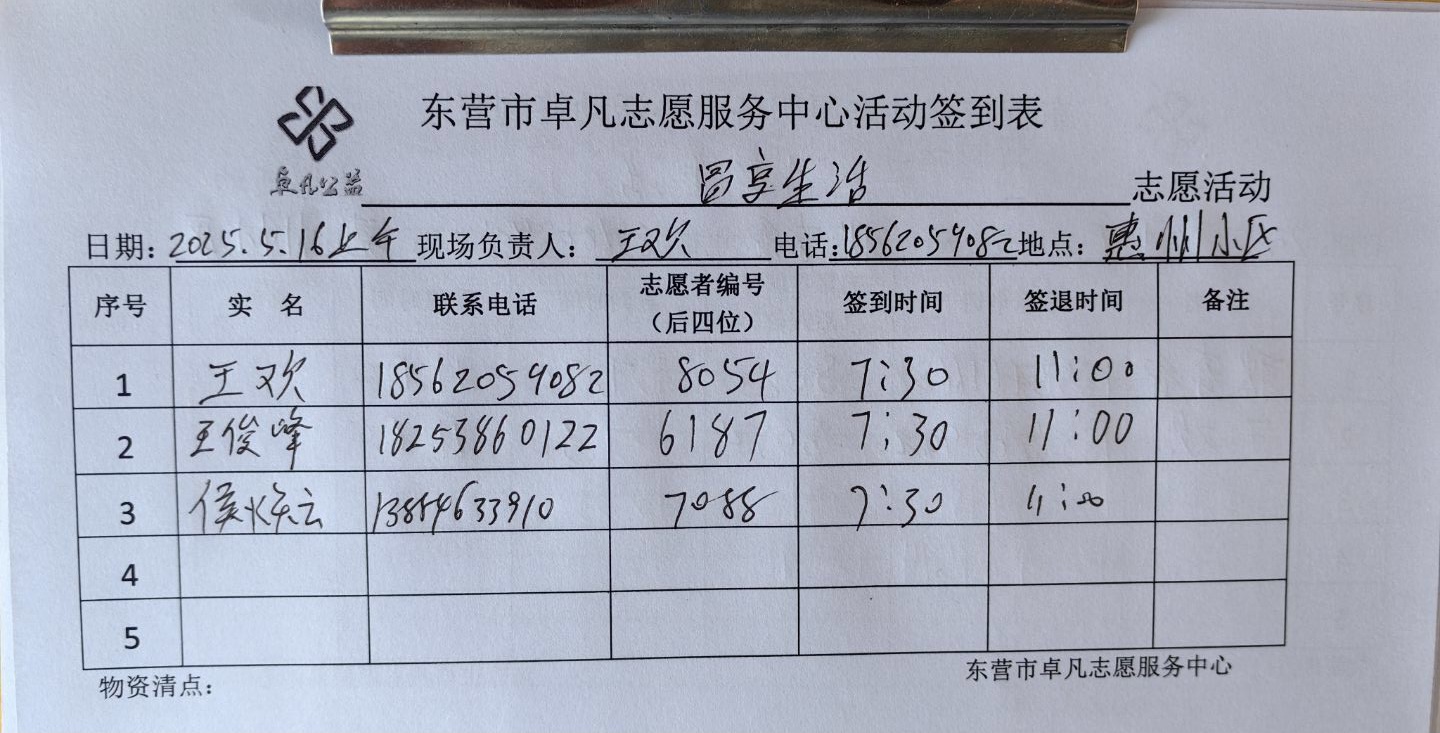 东营市卓凡志愿服务中心活动签到表
卓凡公益 享生活 志愿活动
日期：2025.5.16上午 现场负责人：王欢 电话：18562059082 地点：惠州小区
序号 实 名 联系电话 志愿者编号（后四位） 签到时间 签退时间 备注
1 王欢 18562059082 8054 7:30 11:00
2 王俊峰 18253860122 6187 7:30 11:00
3 侯 云 13854633910 7088 7:30 11:00
4
5
物资清点： 东营市卓凡志愿服务中心